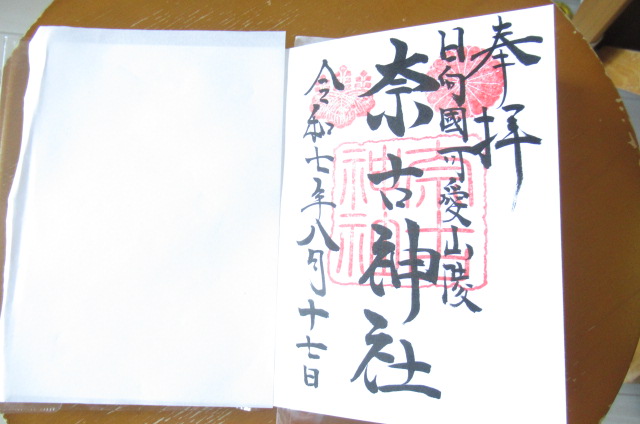 奉拝
日向國可愛山陵
奈古神社
令和七年八月十七日